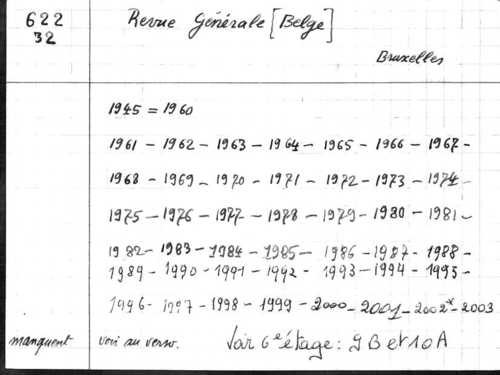 622
32
Revue Générale [Belge]
Bruxelles
1945 = 1960
1961 - 1962 - 1963 - 1964 - 1965 - 1966 - 1967 -
1968 - 1969 - 1970 - 1971 - 1972 - 1973 - 1974 -
1975 - 1976 - 1977 - 1978 - 1979 - 1980 - 1981 -
1982 - 1983 - 1984 - 1985 - 1986 - 1987 - 1988 -
1989 - 1990 - 1991 - 1992 - 1993 - 1994 - 1995 -
1996 - 1997 - 1998 - 1999 - 2000 - 2001 - 2002* - 2003
manquent voir au verso. Voir 6e étage : 9B et 10A